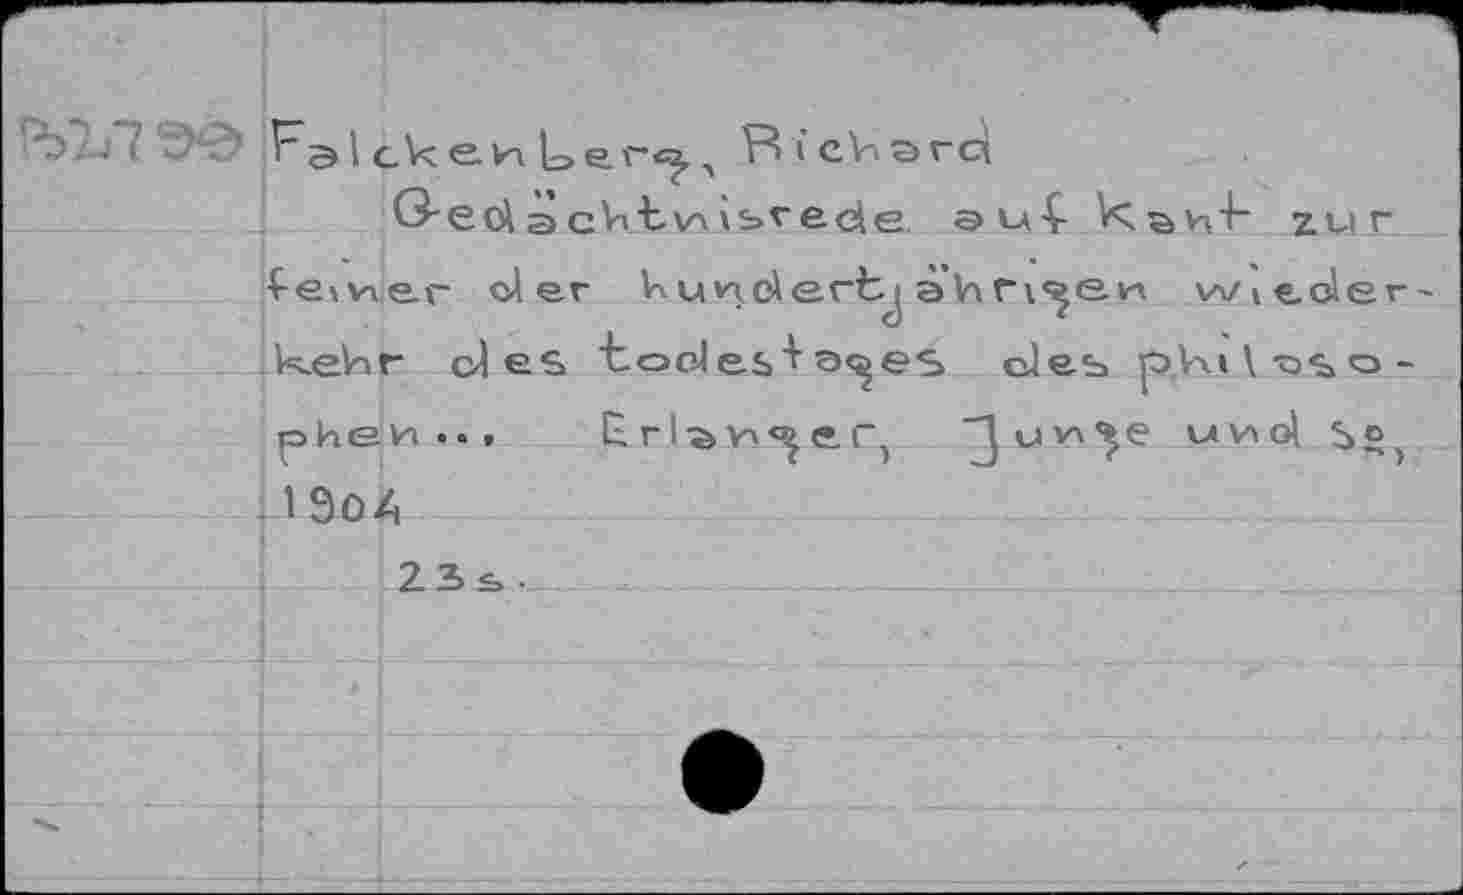 Falckenberg, Richard
Gedächtnisrede auf Kant zur
feiner der hundertjährigen wieder-
kehr des todestages des philoso-
phen... Erlangen, Junge und Sg,
1904
23s.